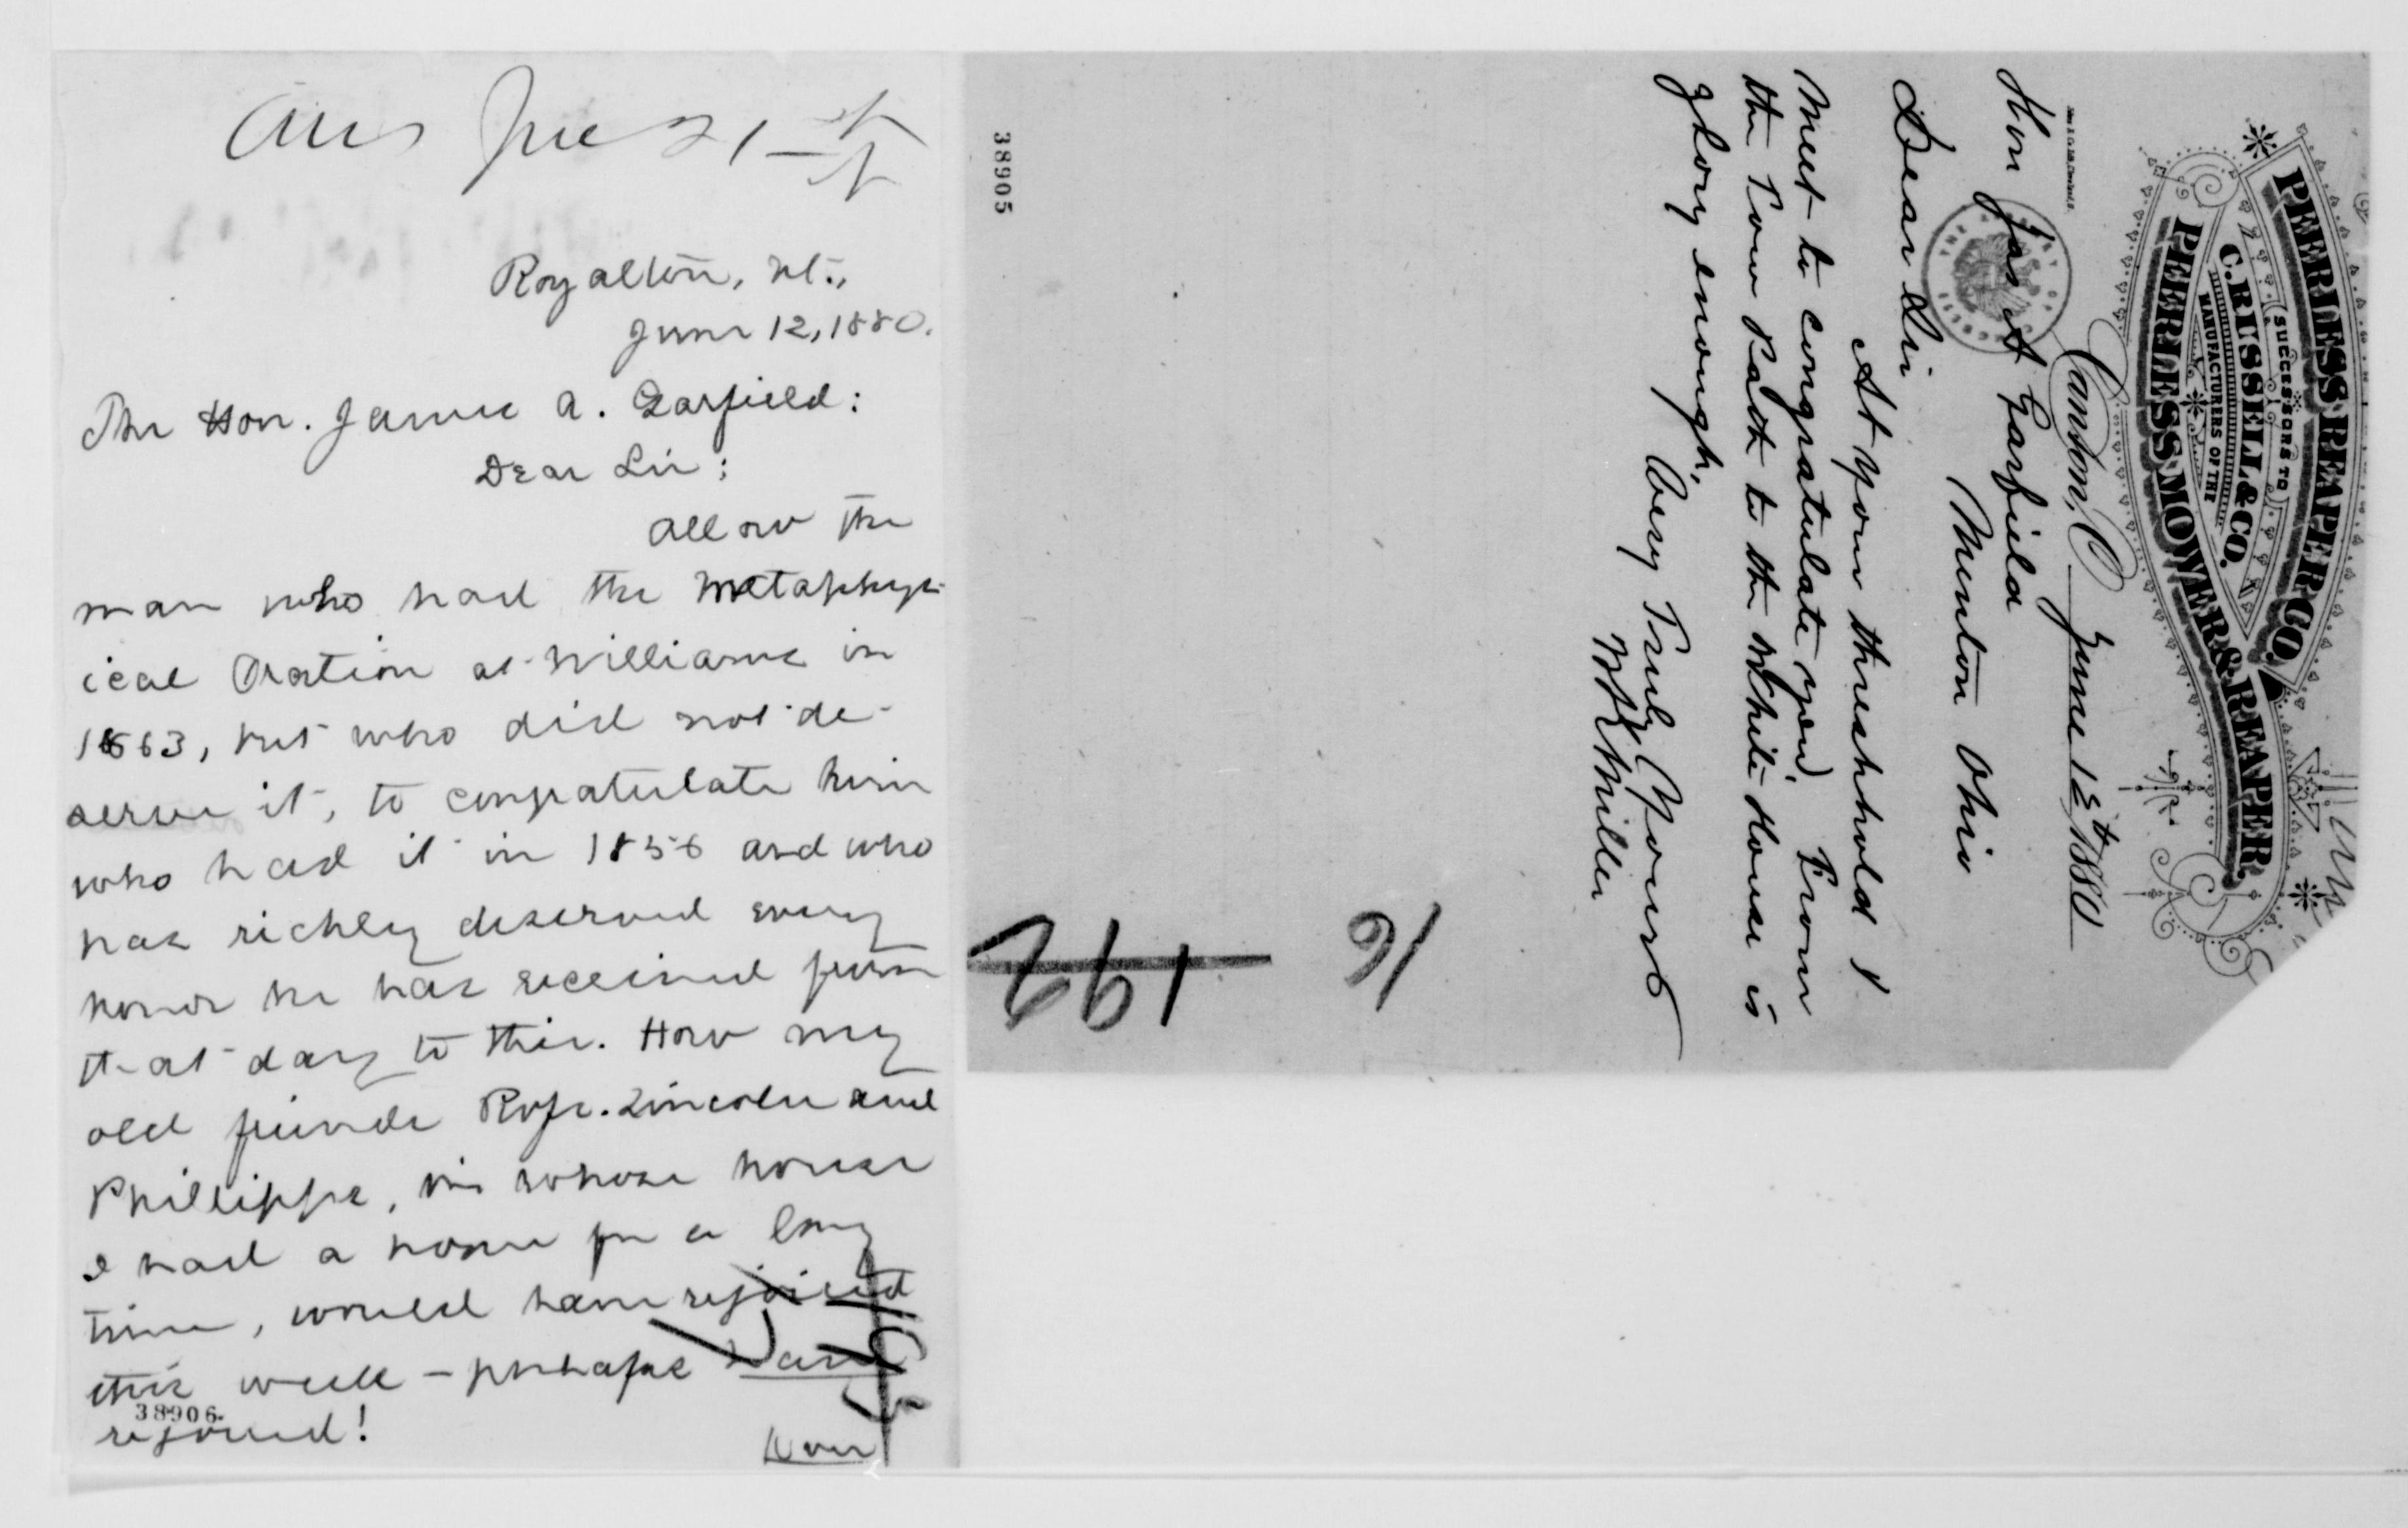 Ans June 21st
Royalton, Vt.,
June 12, 1880.
The Hon. James A. Garfield:
Dear Sir:
Allow the
man who had the Metaphys-
ical Oration at Williams in
1863, but who did not de-
serve it, to congratulate him
who had it in 1856 and who
has richly deserved every
honor he has received from
that day to this. How my
old friends Profs. Lincoln and
Phillips, in whose house
I had a home for a long
time, would have rejoiced
this week – perhaps have
38906
rejoiced!
Over
38905
PEERLESS REAPER CO.
(SUCCESSORS TO)
C. RUSSELL & CO.
MANUFACTURERS OF THE
PEERLESS MOWER & REAPER
Canton, O June 12th 1880
Hon Jas A Garfield
Mentor Ohio
Dear Sir
At your threshhold I
Meet to congratulate you. From
the Tow Path to the White House is
glory enough.
Very Truly Yours
W K Miller
16
192